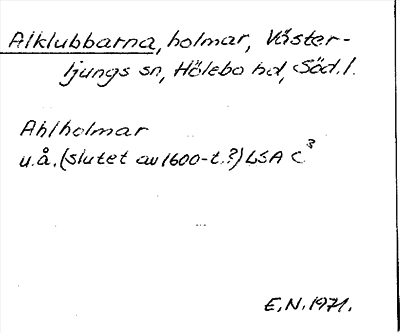 Alklubbarna, holmar, Väster-
ljungs sn, Hölebo hd, Söd.l.
Ahlholmar
u.å. (slutet av 1600-t.?) LSA C³
...
E.N. 1971.